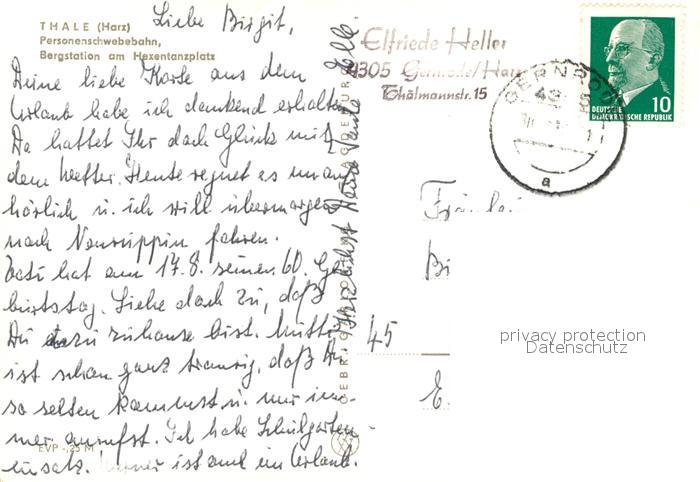 THALE (Harz)
Personenschwebebahn,
Bergstation am Hexentanzplatz
Liebe Birgit,
Deine liebe Karte aus dem
Urlaub habe ich dankend erhalten
Da hattet Ihr doch Glück mit
dem Wetter. Heute regnet es unauf-
hörlich u. ich will übermorgen
nach Neuruppin fahren.
Vati hat am 17.8. seinen 60. Ge-
burtstag. Siehe doch zu, daß
Du dazu zuhause bist. Mutti
ist schon ganz traurig, daß Du
so selten kommst u. nur im-
mer anrufst. Ich habe Schulgarten-
einsatz. ist auch im Urlaub.
Herzlichst Deine Tante Elfr.
EVP -,25 M
Elfriede Heller
4305 Gernrode/Harz
Thälmannstr. 15
GERNRODE
a
DEUTSCHE
DEMOKRATISCHE REPUBLIK
10
Fräulein
Bi
45
E.
privacy protection
Datenschutz